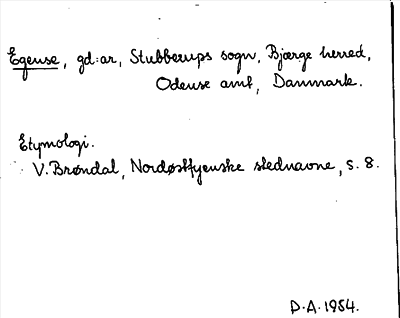 Egense, gd:ar, Stubberups sogn, Bjærge herred,
Odense amt, Danmark.
Etymologi.
V. Brøndal, Nordøstfyenske stednavne, s. 8.
D.A. 1954.